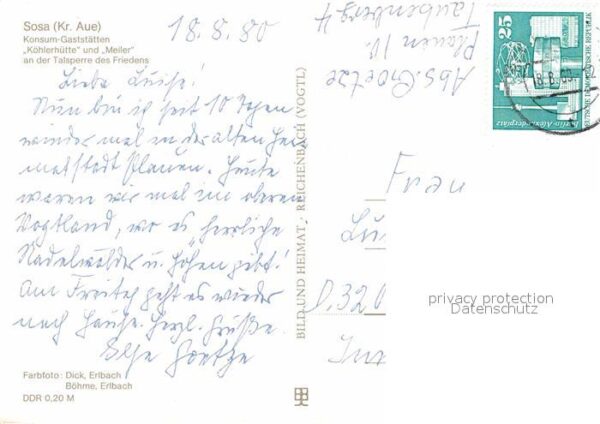 Sosa (Kr. Aue)
Konsum-Gaststätten
„Köhlerhütte" und „Meiler"
an der Talsperre des Friedens
18.8.80
Liebe Luise!
Nun bin ich seit 10 Tagen
wieder mal in der alten Hei
matstadt Plauen. Heute
waren wir mal im oberen
Vogtland, wo es herrliche
Nadelwälder u. Höhen gibt!
Am Freitag geht es wieder
nach Hause. Herzl. Grüße.
Goetze
Farbfoto: Dick, Erlbach
Böhme, Erlbach
DDR 0,20 M
BILD UND HEIMAT · REICHENBACH (VOGTL)
Abs. Goetze
Plauen
Taubenberg 4
25
Berlin, Alexanderplatz
Frau
Lu
D. 320
privacy protection
Datenschutz